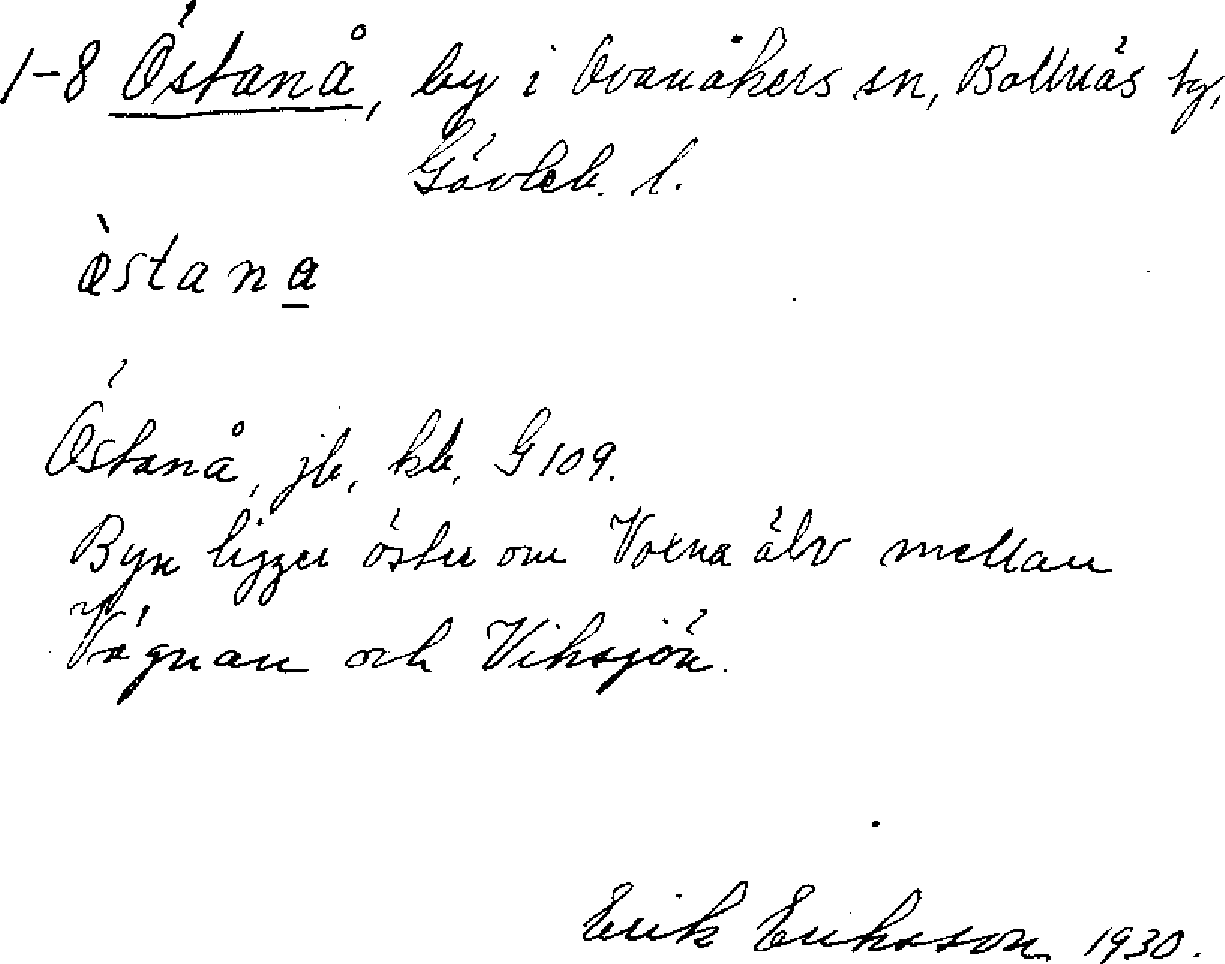 1-8 Östanå, by i Ovanåkers sn, Bollnäs tg,
Gävleb. l.
östana
Östanå, jb, kb, G 109.
Byn ligger öster om Voxna älv mellan
Vägnan och Viksjön.
Erik Eriksson 1930.